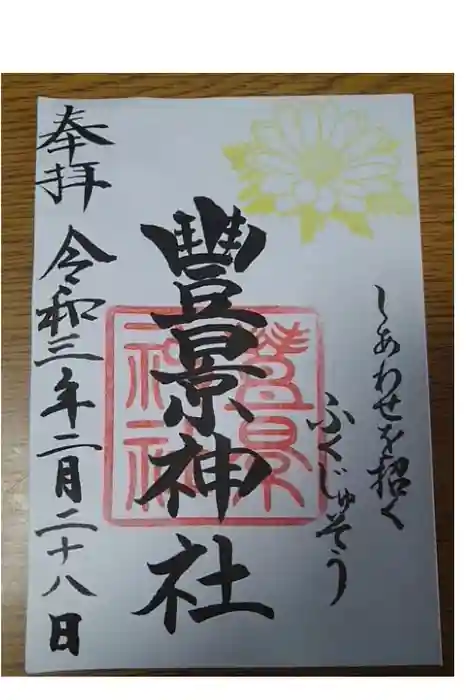 しあわせを招く
ふくじゅそう
豐景神社
豐景
神社
奉拝 令和三年二月二十八日